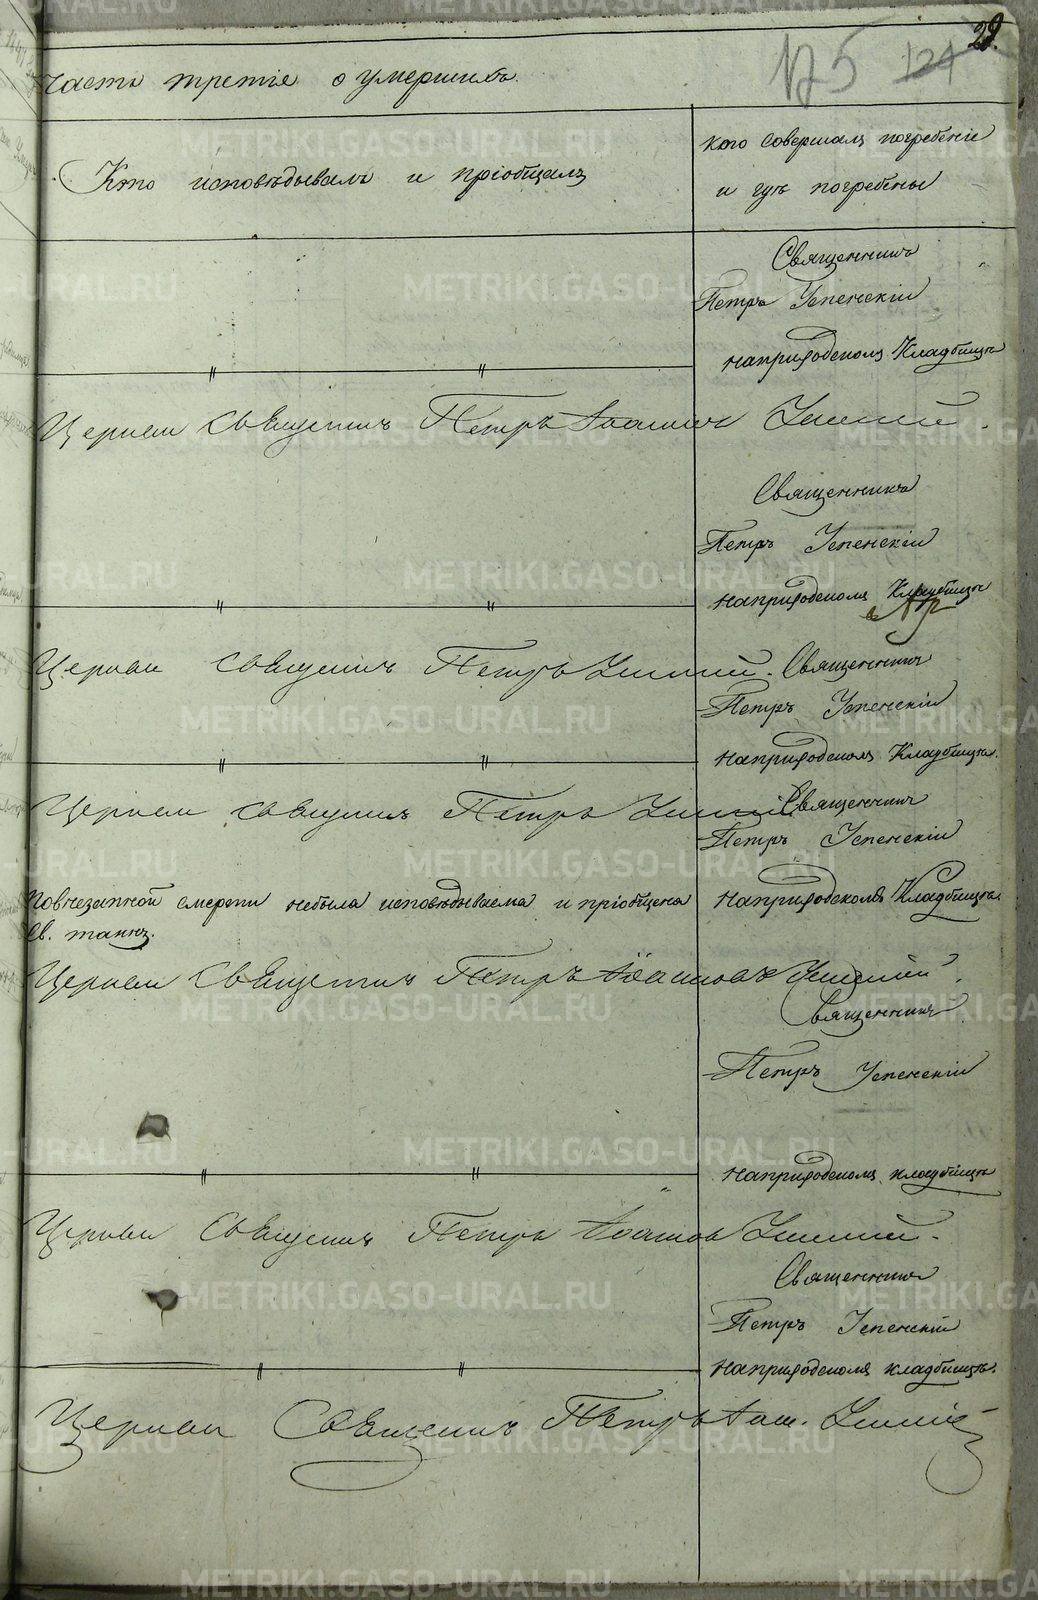 29.
175 124
Часть третія о умершихъ.
Кто исповѣдывалъ и пріобщалъ
кто совершалъ погребеніе
и гдѣ погребены
Священникъ
Петръ Успенскій
На приходскомъ Кладбищѣ
Церкви Священникъ Петръ Іоанновъ Успенскій.
Священникъ
Петръ Успенскій
На приходскомъ Кладбищѣ
Церкви Священникъ Петръ Успенскій.
Священникъ
Петръ Успенскій
На приходскомъ Кладбищѣ.
Церкви Священникъ Петръ Успенскій
Священникъ
Петръ Успенскій
По внезапной смерти небыла исповѣдываема и пріобщена
Св. таинъ.
На приходскомъ Кладбищѣ.
Церкви Священникъ Петръ Іоанновъ Успенскій.
Священникъ
Петръ Успенскій
На приходскомъ кладбищѣ
Церкви Священникъ Петръ Іоанновъ Успенскій.
Священникъ
Петръ Успенскій
На приходскомъ кладбищѣ.
Церкви Священникъ Петръ Іоан. Успенскій
METRIKI.GASO-URAL.RU